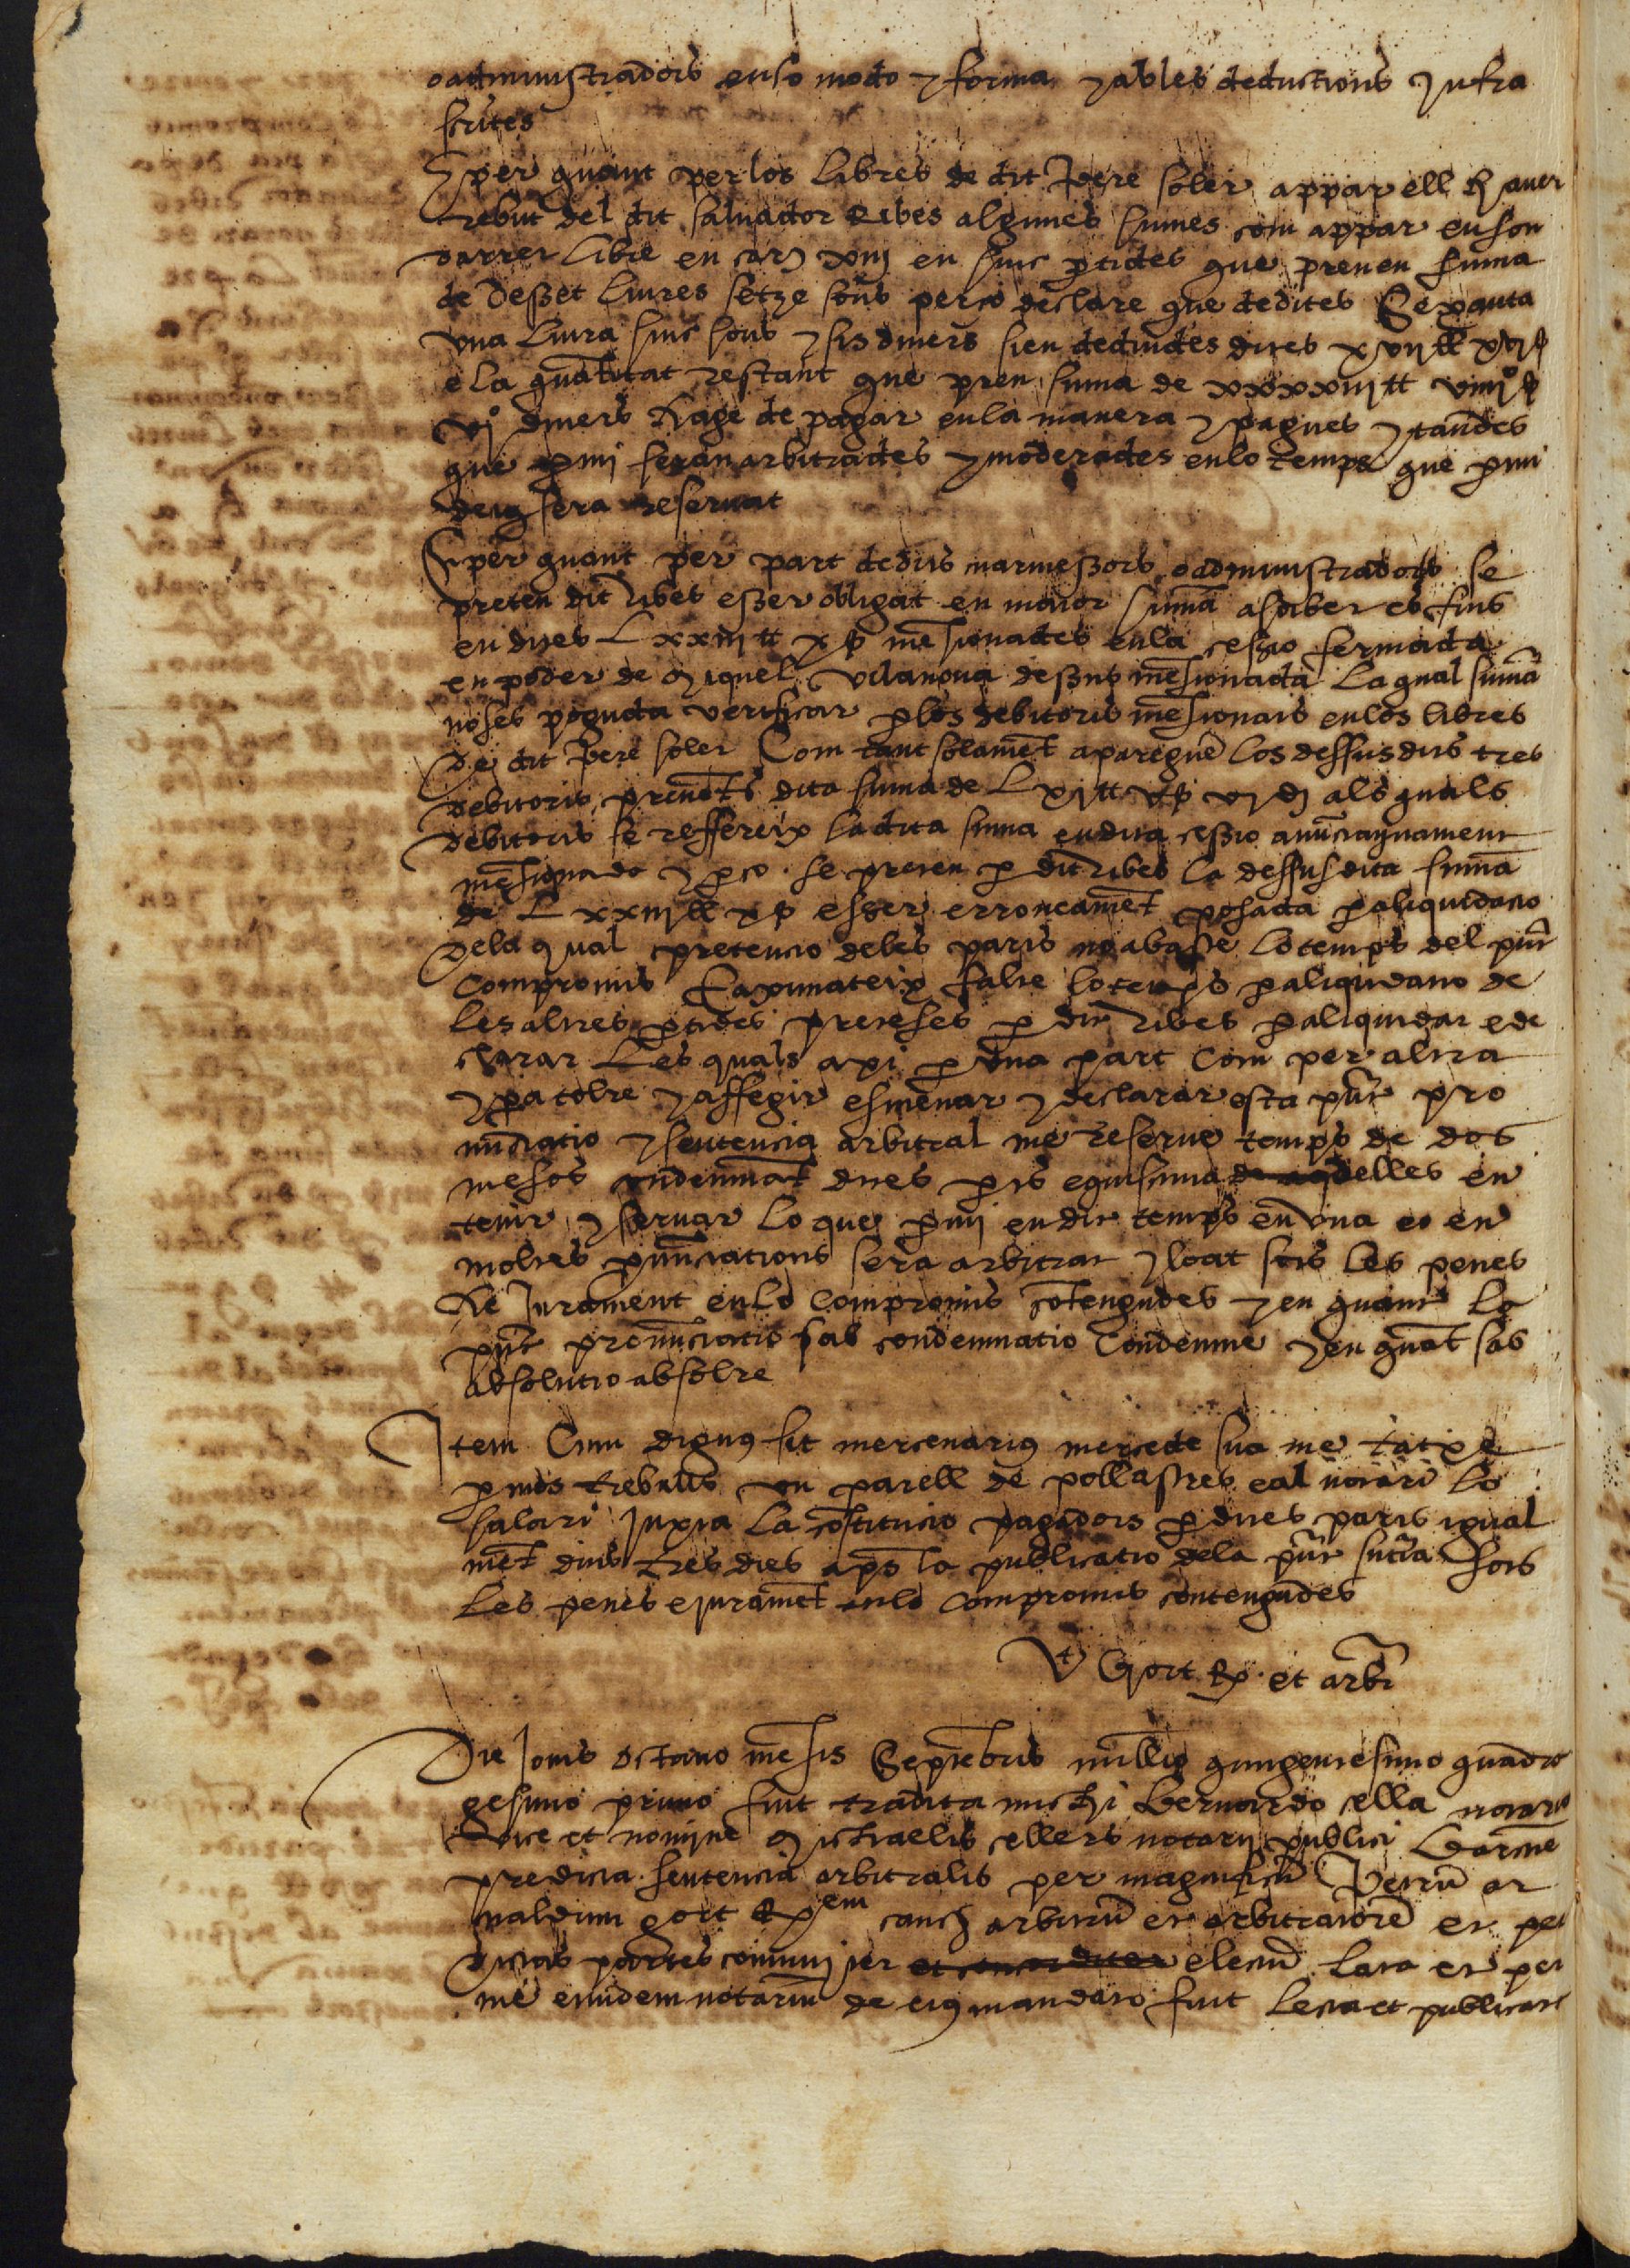 o administradors en lo modo y forma y ables deductions Infra
scrites
E per quant per los libres de dit pere soler appar ell haver
rebut del dit salvador Ribes algunes sumes com appar en son
darrer libre en cartes xiiij en sinc ptides que prenen suma
de desset liures setze sous perço declare que de dites Sexanta
una liura sinc sous y sis diners sien deduides dites xvij ll xvj s
e la quantitat restant que pren suma de xxxxiij ll viiij s
vj diners hage de pagar en la manera y pagues y tandes
que p mi seran arbitrades y moderades en lo temps que p mi
deius sera reservat
E per quant per part de dits marmessors o administradors se
preten dit ribes esser obligat en maior suma a saber es fins
en dites Lxxiiij ll x s mensionades en la cessio fermada
en poder de Miquel vilanova dessus mensionada la qual suma
no ses poguda verificar p los debitoris mensionats en los libres
de dit pere soler Com tant solament apareguen los dessus dits tres
debitoris prenents dita suma de Lxj ll v s vj d als quals
debitoris se reffereix la dita suma en dita cessio
mensionada y p ço se preten p dit ribes la dessus dita suma
de Lxxiiij ll x s esser erroneament posada p a liquidacio
de la qual pretencio de les parts no abaste lo temps del pnt
compromis E axi mateix falte lo temps p a liquidacio de
les altres ptides preteses p dit ribes p a liquidar e de
clarar les quals axi p una part com per altra
y p a tolre y affegir esmenar y declarar esta pnt pro
nunciatio y sentencia arbitral me reserve temps de dos
mesos condemnant dites pts e quiscuna de aquelles en
tenir y servar lo que p mi en dit temps en una o en
moltes pnunciations sera arbitrat y loat sots les penes
he Jurament en lo compromis contengudes y en quant la
pnt pronunciatio sab condemnatio Condemne y en quant sab
absolutio absolre
Item Cum dignus sit mercenarius mercede sua me tatxe
p mos treballs un parell de pollastres e al notari lo
salari Juxta la constitucio pagadors p dites parts igual
ment dins tres dies aps la publicatio de la pnt sntia sots
les penes e jurament en lo compromis contengudes
Vt Gort Rx et arbr
Die Jovis octavo mensis Septembris millo quingentesimo quadra
gesimo primo fuit tradita michi Bernardo cella notario
vice et nomine Michaelis cellers notarij publici Barcne
predicta sentencia arbitralis per magnificum Petrum ar
naldum gort Rxem canch arbitrum et arbitratorem et per
dictas partes comuniter et concorditer electum lata et per
me eundem notarium de eius mandato fuit lecta et publicata